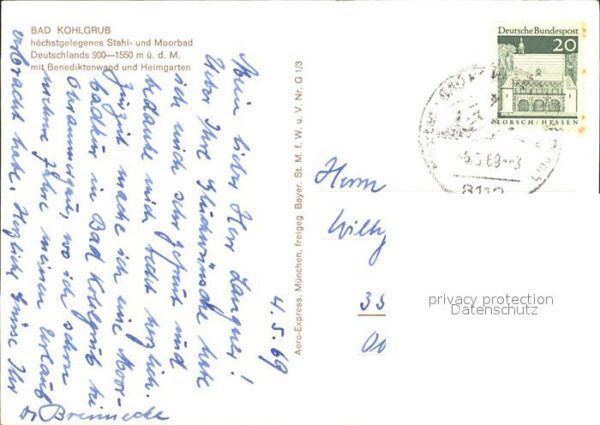 BAD KOHLGRUB
höchstgelegenes Stahl- und Moorbad
Deutschlands 900—1550 m ü. d. M.
mit Benediktenwand und Heimgarten
Mein lieber Herr Langner!
Über Ihre Glückwünsche habe
ich mich sehr gefreut und
bedanke mich recht herzlich.
Zurzeit mache ich eine Moor-
badkur in Bad Kohlgrub bei
Oberammergau, wo ich schon
mehrere Jahre meinen Urlaub
verbracht habe. Herzliche Grüsse Ihr
Dr Brennecke
4.5.69
Aero-Express, München, freigeg. Bayer. St. M. f. W. u. V. Nr. G 1/3
Deutsche Bundespost
20
LORSCH/HESSEN
-5.5.69-3
8112
Herrn
Willy
35
privacy protection
Datenschutz